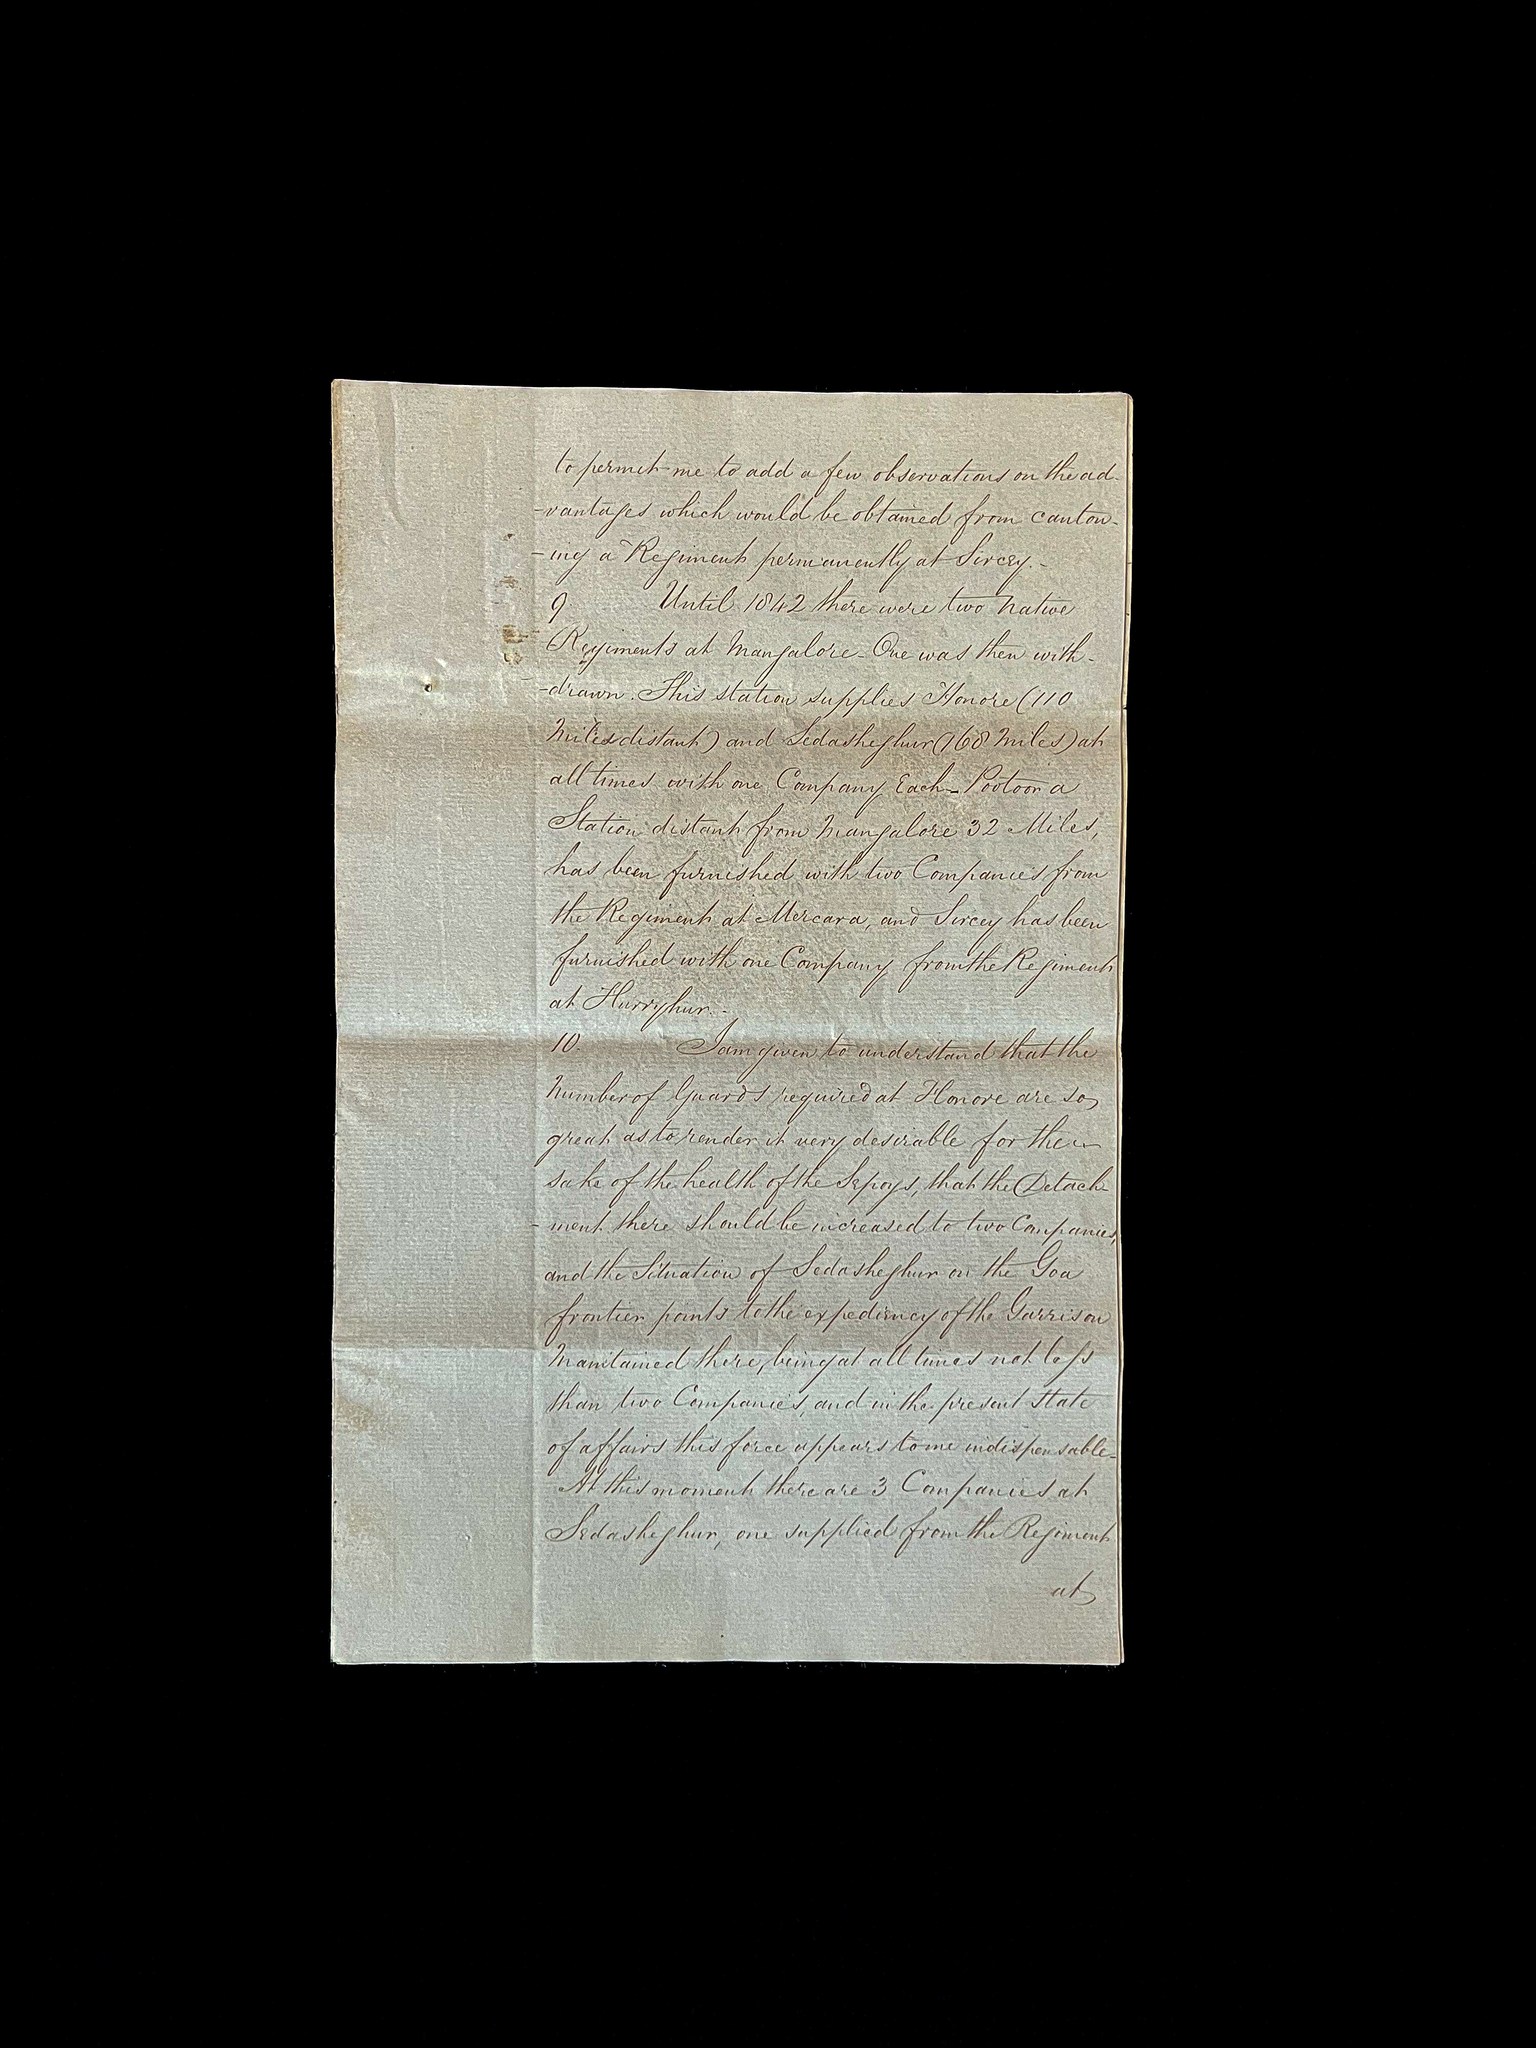 to permit me to add a few observations on the ad-
-vantages which would be obtained from canton-
-ing a Regiment permanently at Sircey.-
9 Until 1842 there were two native
Regiments at Mangalore - One was then with-
-drawn. This station supplies Honore (110
Miles distant) and Sedasheghur (168 Miles) at
all times with one Company Each - Pootoor a
Station distant from Mangalore 32 Miles,
has been furnished with two Companies from
the Regiment at Mercara, and Sircey has been
furnished with one Company from the Regiment
at Hurryhur.-
10. I am given to understand that the
Number of Guards required at Honore are so
great as to render it very desirable for the
sake of the health of the Sepoys, that the Detach-
-ment there should be increased to two Companies,
and the Situation of Sedasheghur on the Goa
frontier points to the expediency of the Garrison
Maintained there, being at all times not less
than two Companies, and in the present state
of affairs this force appears to me indispensable-
At this moment there are 3 Companies at
Sedasheghur, one supplied from the Regiment
at